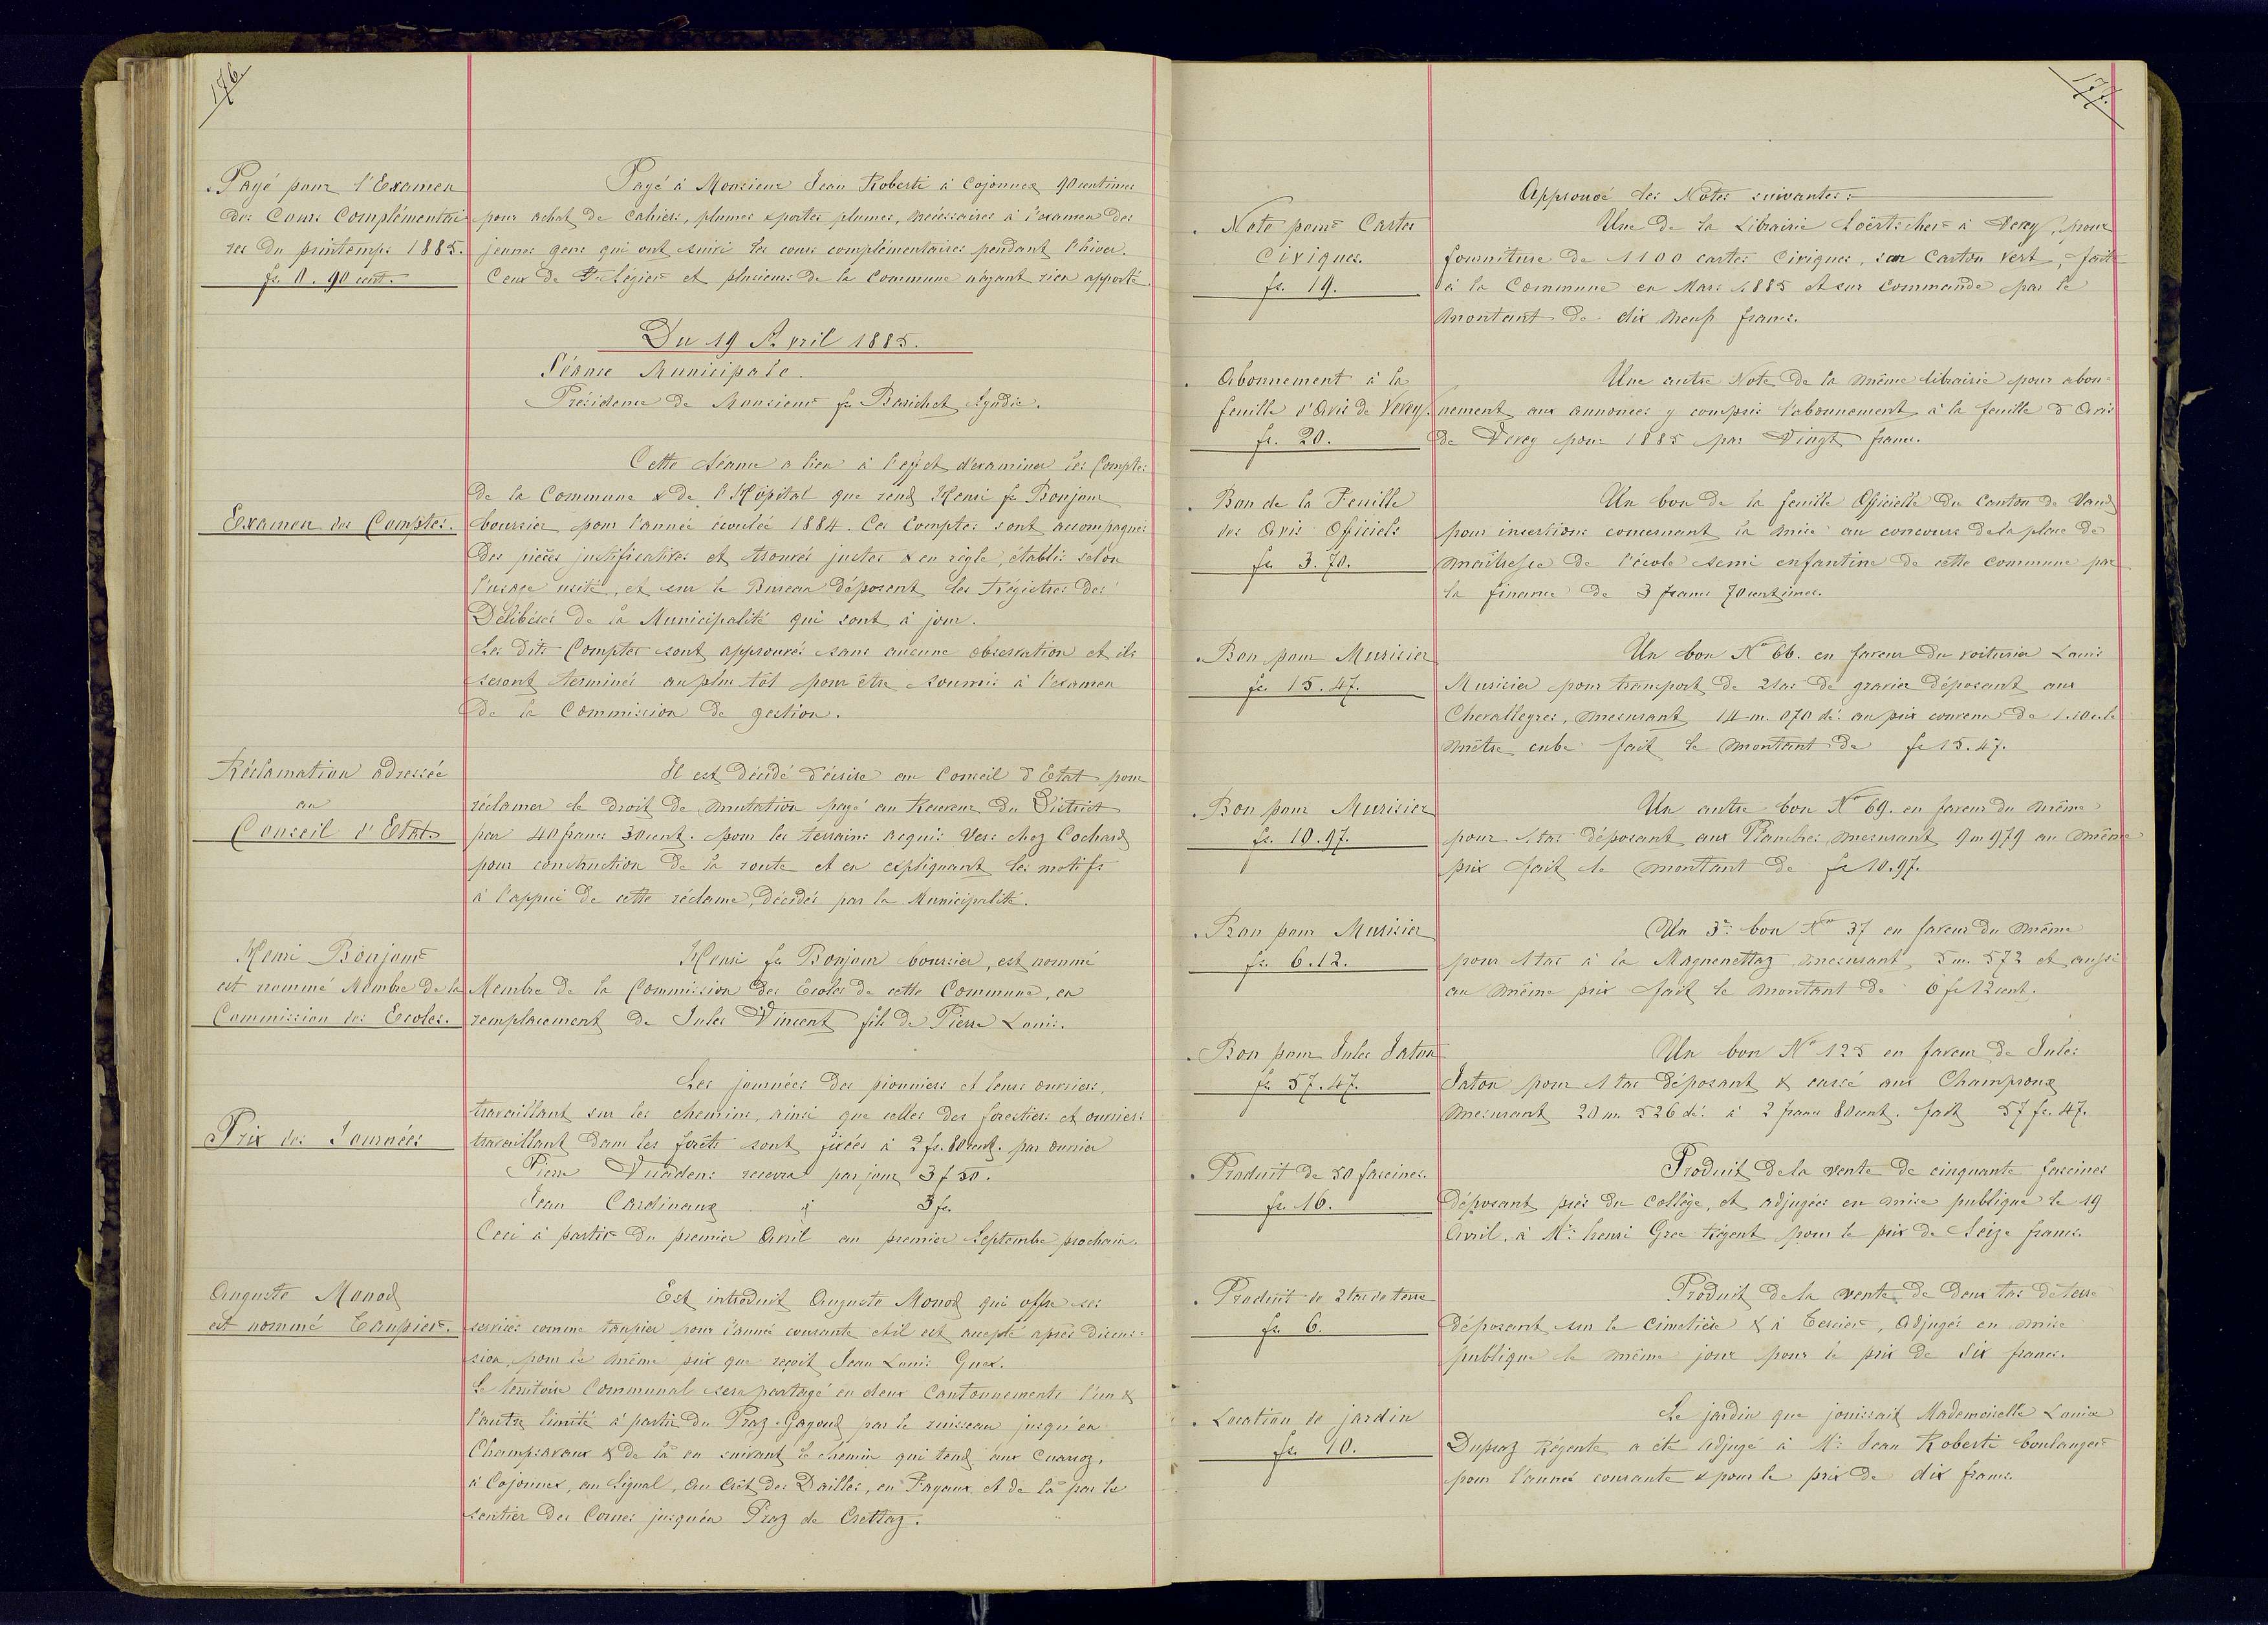 176.
Payé pour l'Examen
des Cours Complémentai-
res du printemps 1885.
fr. 0. 90 cent.
Payé à Monsieur Jean Roberti à Cojonnex 90 centimes
pour achat de Cahiers, plumes & portes plumes, nécessaires à l'examen des
jeunes gens qui ont suivi les cours complémentaires pendant l'hiver.
Ceux de St Légier et plusieurs de la Commune n'ayant rien apporté.
Du 19 Avril 1885.
Séance Municipale.
Présidence de Monsieur fs Barichet Syndic.
Examen des Comptes.
Cette séance a lieu à l'effet d'examiner les Comptes
de la Commune & de l'Hôpital que rend Henri fs Bonjour
boursier pour l'année écoulée 1884. Ces Comptes sont accompagnés
des pièces justificatives et trouvés justes & en règle, établis selon
l'usage usité, et sur le Bureau déposent les Régistres des
Délibérés de la Municipalité qui sont à jour.
Les dits Comptes sont approuvés sans aucune observation et ils
seront terminés au plus tôt pour être soumis à l'examen
de la Commission de gestion.
Réclamation adressée
au
Conseil d'Etat.
Il est décidé d'écrire au Conseil d'Etat pour
réclamer le droit de mutation payé au Receveur du District
par 40 francs 30 cent. pour les terrains acquis Vers chez Cochard
pour construction de la route et en expliquant les motifs
à l'appui de cette réclame, décidés par la Municipalité.
Henri Bonjour
est nommé Membre de la
Commission des Ecoles.
Henri fs Bonjour boursier, est nommé
Membre de la Commission des Ecoles de cette Commune, en
remplacement de Jules Vincent fils de Pierre Louis.
Prix des Journées
Les journées des pionniers et leurs ouvriers,
travaillant sur les chemins, ainsi que celles des forestiers et ouvriers
travaillant dans les forêts sont fixées à 2 fr. 80 cent. par ouvrier
Pierre Vuadens recevra par jour 3 f 50.
Jean Cardinaux " 3 fr.
Ceci à partir du premier Avril au premier Septembre prochain.
Auguste Monod
est nommé Taupier.
Est introduit Auguste Monod qui offre ses
services comme taupier pour l'année courante et il est accepté après discus-
sion, pour le même prix que reçoit Jean Louis Guex.
Le territoire Communal sera partagé en deux Cantonnements l'un &
l'autre limité à partir du Praz-Gagoud par le ruisseau jusqu'en
Champsavaux & de là en suivant le chemin qui tend aux Cuarroz,
à Cojonnex, au Signal, au Crêt des Dailles, en Fayaux et de là par le
sentier des Cornes jusqu'en Praz de Crettaz.
177.
Approuvé les Notes suivantes:
Note pour Cartes
Civiques.
fr. 19.
Une de la Librairie Loërtscher à Vevey, pour
fourniture de 1100 cartes Civiques, sur Carton vert, fait
à la Commune en Mars 1885 et sur commande par le
montant de dix neuf francs.
Abonnement à la
feuille d'Avis de Vevey.
fr. 20.
Une autre Note de la même librairie pour abon-
nement aux annonces y compris l'abonnement à la feuille d'Avis
de Vevey pour 1885 par Vingt francs.
Bon de la Feuille
des Avis Officiels
fr. 3. 70.
Un bon de la feuille Officielle du Canton de Vaud
pour insertions concernant la mise au concours de la place de
maîtresse de l'école semi enfantine de cette commune par
la finance de 3 francs 70 centimes.
Bon pour Murisier
fr. 15. 47.
Un bon No 66. en faveur du voiturier Louis
Murisier pour transport de 2 tas de gravier déposant aux
Chevallegres, mesurant 14 m. 070 dé. au prix convenu de 1.10 c. le
mètre cube fait le montant de fr 15. 47.
Bon pour Murisier
fr. 10. 97.
Un autre bon No 69. en faveur du même
pour 1 tas déposant aux Planches mesurant 9 m 979 au même
prix fait le montant de fr 10. 97.
Bon pour Murisier
fr. 6. 12.
Un 3e bon No 37 en faveur du même
pour 1 tas à la Maguenettaz mesurant 5 m. 572 et aussi
au même prix fait le montant de 6 fr 12 cent.
Bon pour Jules Jaton
fr 57. 47.
Un bon No 125 en faveur de Jules
Jaton pour 1 tas déposant & cassé aux Champroux
mesurant 20 m. 526 dé. à 2 francs 80 cent. fait 57 fr. 47.
Produit de 50 fascines.
fr. 16.
Produit de la vente de cinquante fascines
déposant près du Collège, et adjugées en mise publique le 19
Avril, à Mr. henri Grec Régent pour le prix de Seize francs.
Produit de 2 tas de terre
fr. 6.
Produit de la vente de deux tas de terre
déposant sur le Cimetière & à Tercier, Adjugés en mise
publique le même jour pour le prix de Six francs.
Location de jardin
fr. 10.
Le jardin que jouissait Mademoiselle Louise
Dupraz Régente, a été adjugé à Mr. Jean Roberti boulanger
pour l'année courante & pour le prix de dix francs.